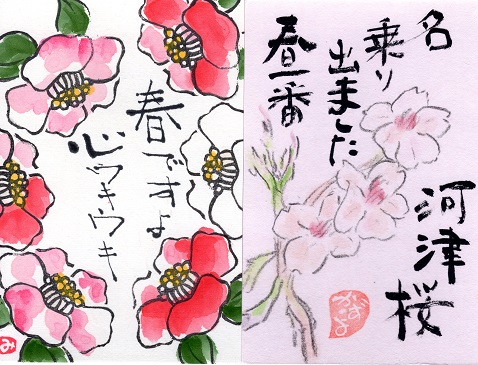 春ですよ
心ウキウキ
み
名
乗り
出ました
春一番
河津桜
かずよ